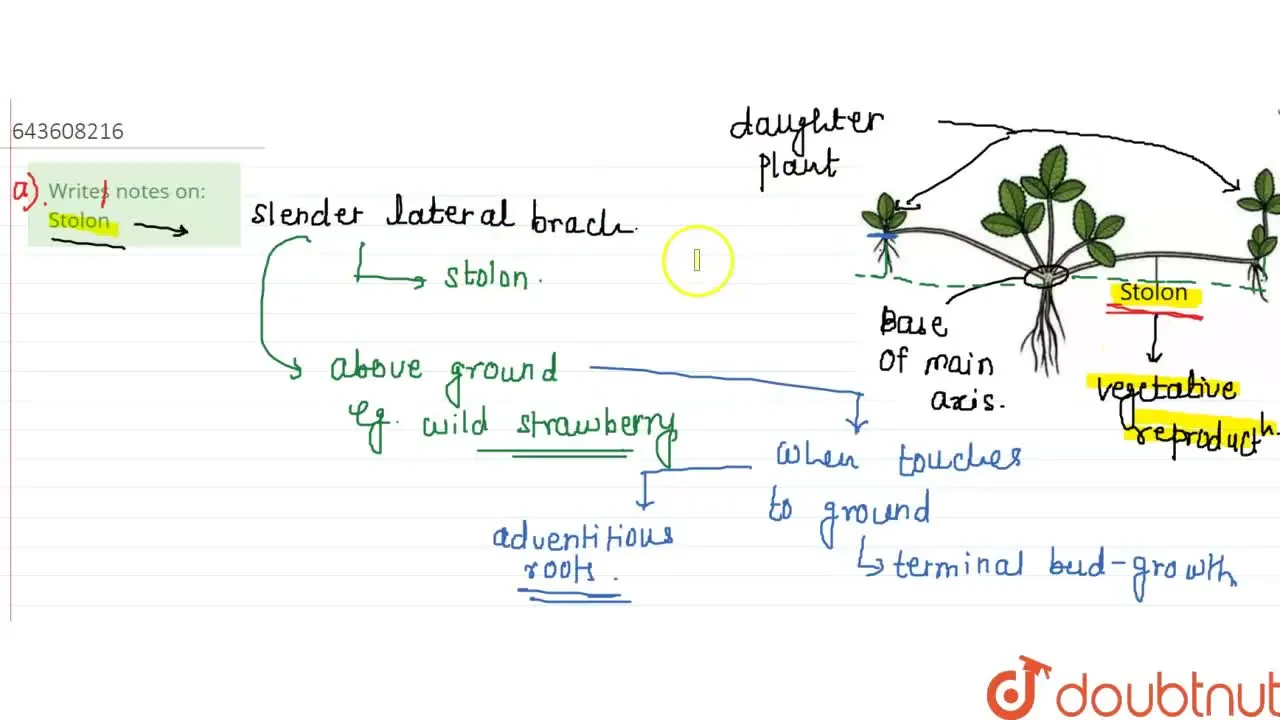 643608216
a).
Writes notes on:
Stolon
slender lateral brach.
stolon.
above ground
eg. wild strawberry
adventitious
roots.
when touches
to ground
terminal bud-growth
daughter
plant
Base
of main
axis.
Stolon
vegetative
reproductn.
doubtnut